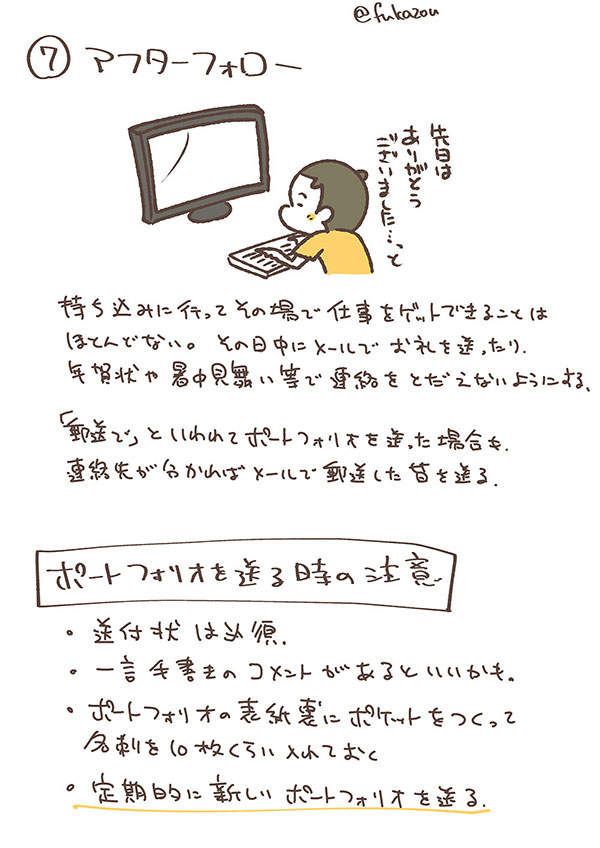 @fukazou
⑦ アフターフォロー
先日は
ありがとう
ございました…っと
持ち込みに行ってその場で仕事をゲットできることは
ほとんどない。その日中にメールでお礼を送ったり、
年賀状や暑中見舞い等で連絡をとだえないようにする。
「郵送で」といわれてポートフォリオを送った場合も、
連絡先が分かればメールで郵送した旨を送る。
ポートフォリオを送る時の注意
・送付状は必須。
・一言手書きのコメントがあるといいかも。
・ポートフォリオの表紙裏にポケットをつくって
名刺を10枚くらい入れておく
・定期的に新しいポートフォリオを送る。